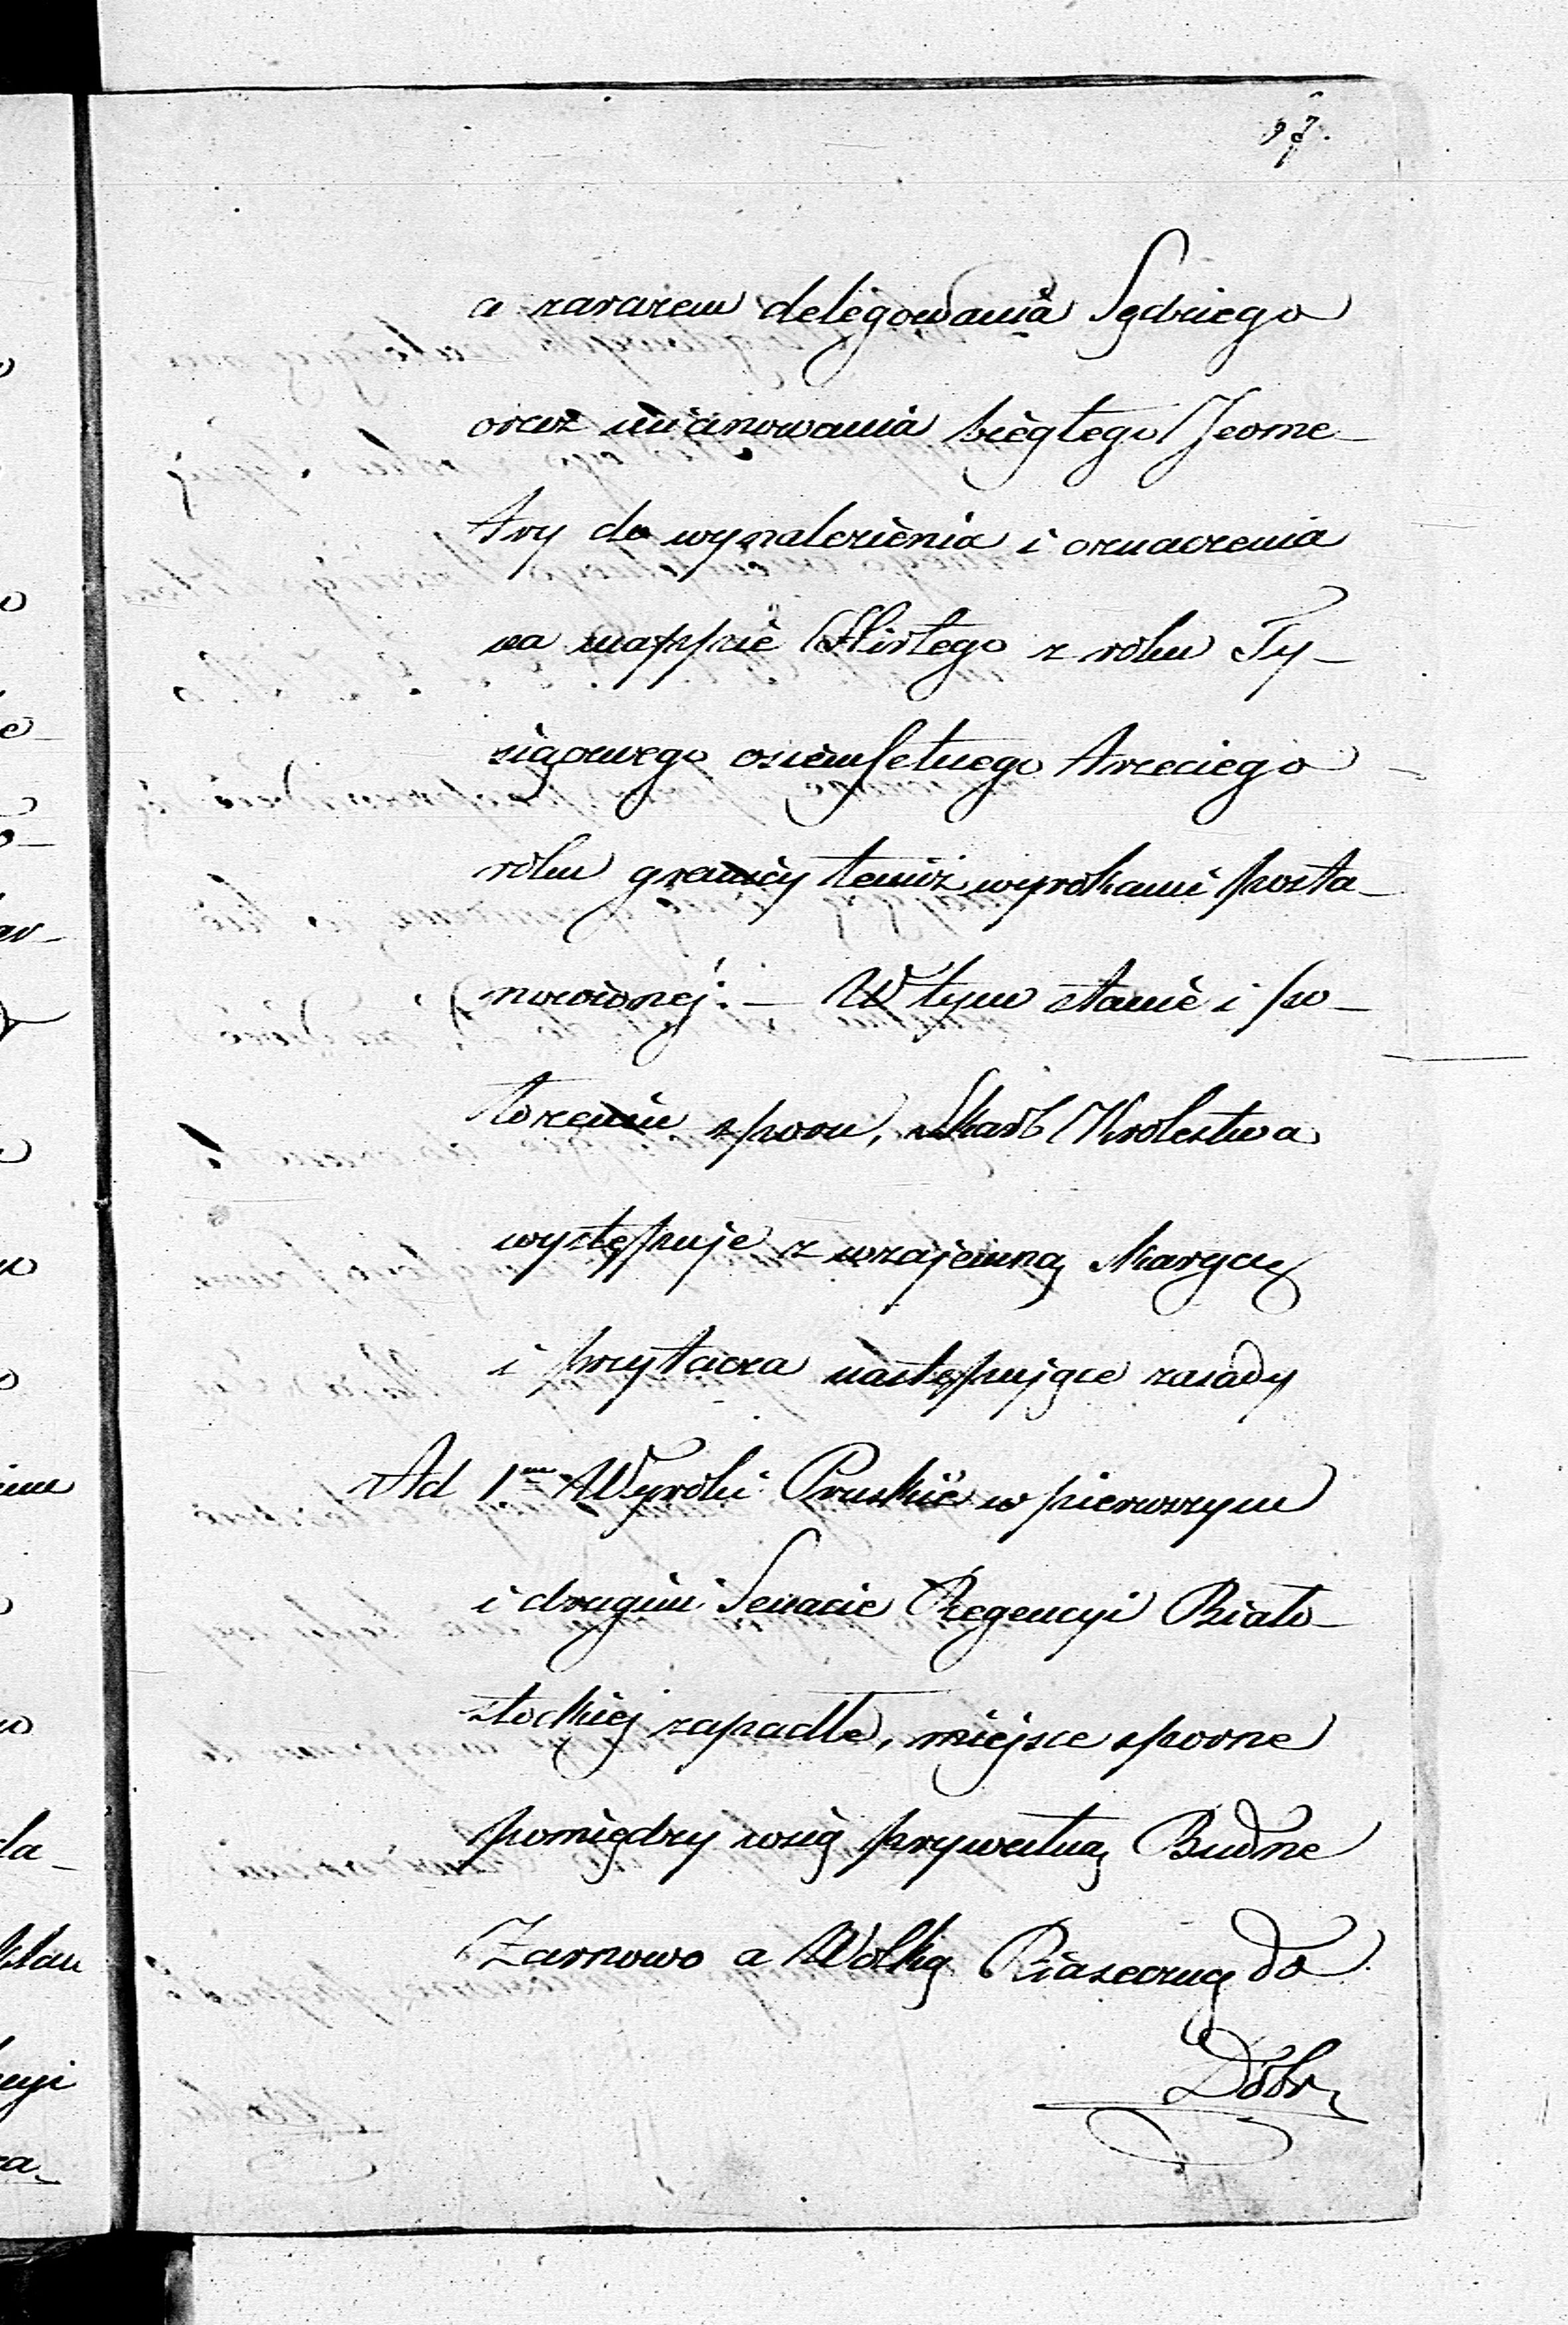 97.
a zarazem delegowania Sędziego
oraz mianowania biegłego Jeome-
try do wynalezienia i oznaczenia
na mappie Hirtego z roku Ty-
siącznego osiemsetnego trzeciego
roku granicy temiż wyrokami posta-
nowionej. — W tym stanie i po-
łożeniu sporu, Skarb Krolestwa
występuje z wzajemną skargą
i przytacza następujące zasady
Ad 1m Wyroki Pruskie w pierwszym
i drugim Senacie Regencyi Biało-
stockiej zapadłe, miejsce sporne
pomiędzy wsią prywatną Budne
Żarnowo a Wolką Piaseczną do
Dobr